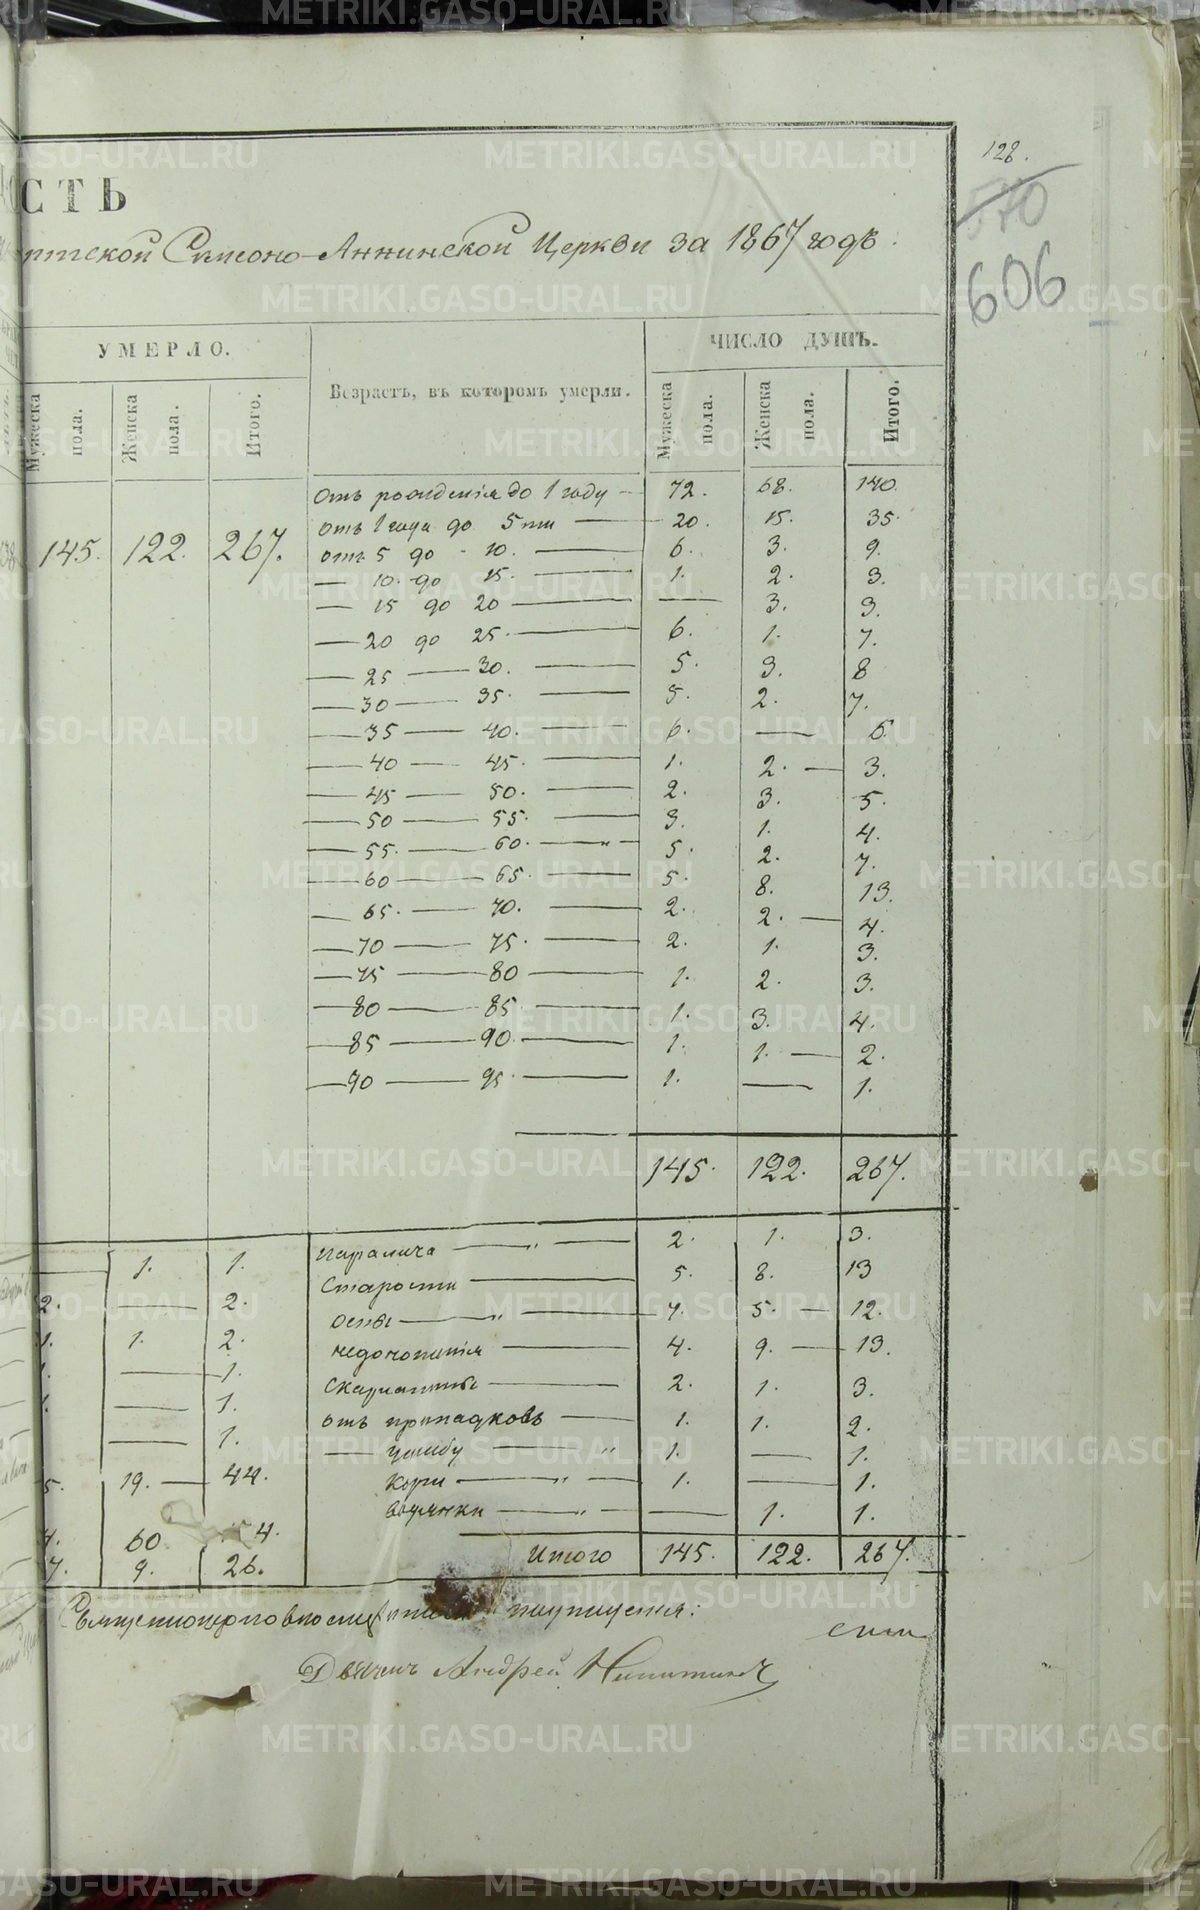 128.
570
606
СТЬ
птской Симоно-Аннинской Церкви за 1867 годъ.
УМЕРЛО.
Мужеска пола.
Женска пола.
Итого.
Возрастъ, въ которомъ умерли.
ЧИСЛО ДУШЪ.
Мужеска пола.
Женска пола.
Итого.
145. 122. 267.
Отъ рожденія до 1 году 72. 68. 140
отъ 1 года до 5ти 20. 15. 35.
отъ 5 до 10. 6. 3. 9.
10. до 15. 1. 2. 3.
15 до 20 — 3. 3.
20 до 25. 6. 1. 7.
25 — 30. 5. 3. 8
30 — 35. 5. 2. 7.
35 — 40. 6. — 6.
40 — 45. 1. 2. — 3.
45 — 50. 2. 3. 5.
50 — 55. 3. 1. 4.
55. — 60. 5. 2. 7.
60 — 65. 5. 8. 13.
65. — 70. 2. 2. — 4.
70 — 75. 2. 1. 3.
75 — 80 1. 2. 3.
80 — 85. 1. 3. 4.
85 — 90. 1. 1. — 2.
90 — 95. 1. — 1.
145. 122. 267.
1. 1. Паралича 2. 1. 3.
2. — 2. Старости 5. 8. 13
1. 1. 2. Оспы 7. 5. — 12.
1. — 1. недоношенія 4. 9. — 13.
1. — 1. Скарлатины 2. 1. 3.
— 1. отъ припадковъ 1. 1. 2.
5. 19. — 44. ушибу 1. — 1.
Кори 1. — 1.
4. 60 4. водянки — 1. 1.
7. 9. 26. Итого 145. 122. 267.
Дьячекъ Андрей
METRIKI.GASO-URAL.RU